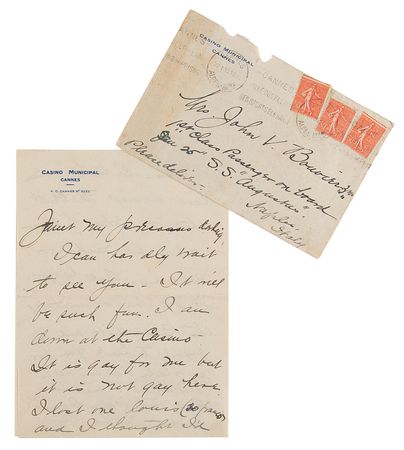 CASINO MUNICIPAL
CANNES
CANNES
Mrs. John V. Bouvier 3rd
1st class Passenger on board
Jan 25 S.S. "Augustus"
Please deliver
Naples
Italy
CASINO MUNICIPAL
CANNES
R. C. CANNES Nº
Janet my precious
I can hardly wait
to see you - It will
be such fun. I am
down at the Casino
It is gay for me but
it is not gay here
I lost one louis (20 francs)
and I thought I'd